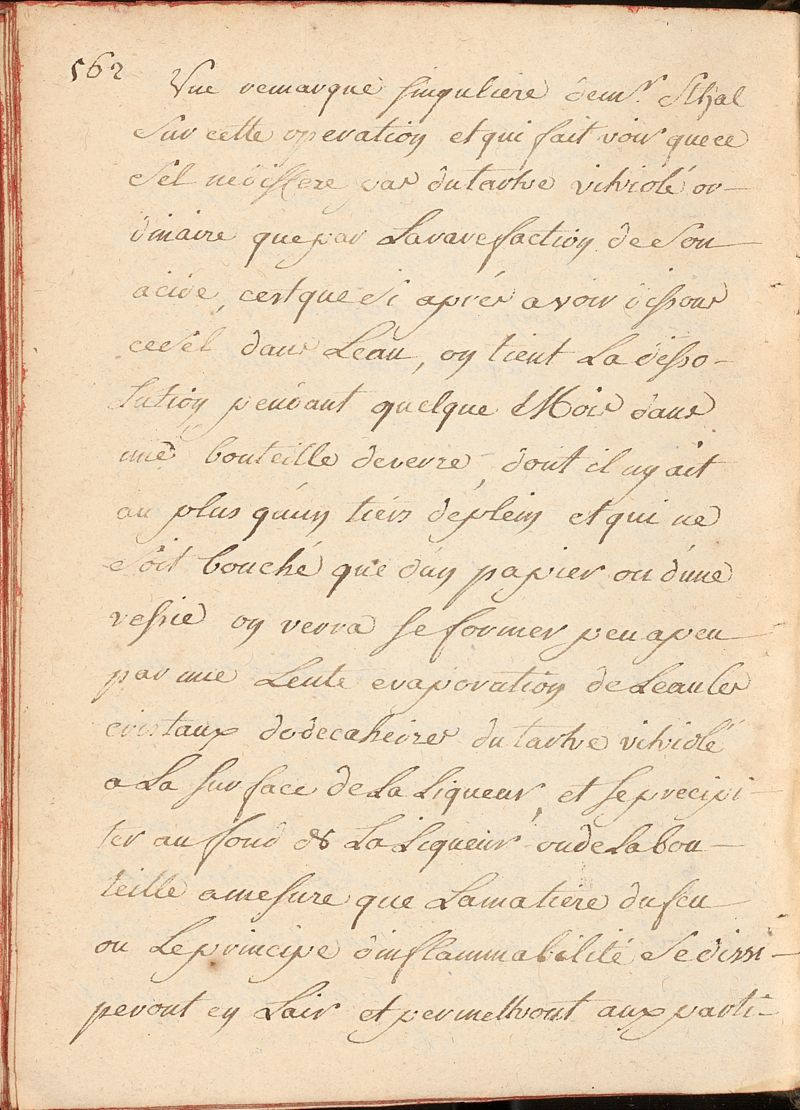 562
Une remarque singuliere dem.r Sthal
Sur cette operation et qui fait voir que ce
Sel ne differe pas du tartre vitriolé or-
dinaire que par La rarefaction de Son
acide, cest que Si aprés avoir dissous
ce Sel dans Leau, on tient La disso-
lution pendant quelque Mois dans
une bouteille de verre, dont il ny ait
au plus qu'un tiers de plein et qui ne
Soit bouché que d'un papier ou d'une
vessie on verra se former peu a peu
par une Lente evaporation de Leau les
cristaux dodecaheires du tartre vitriolé
a La surface de La Liqueur, et se precipi-
ter au fond de La Liqueur ou de La bou-
teille a mesure que La matiere du feu
ou Le principe d'inflammabilité Se dissi-
peront en Lair et permettront aux parti-